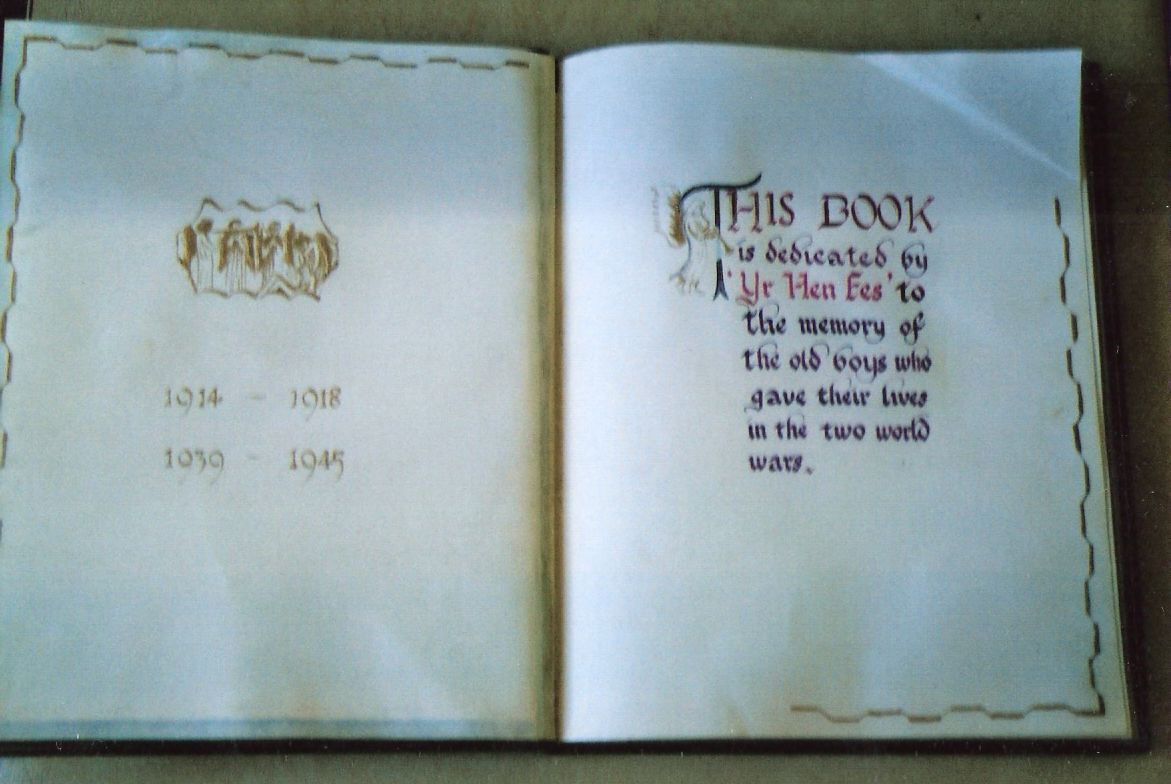 1914 - 1918
1939 - 1945
THIS BOOK
is dedicated by
'Yr Hen Ees' to
the memory of
the old boys who
gave their lives
in the two world
wars.